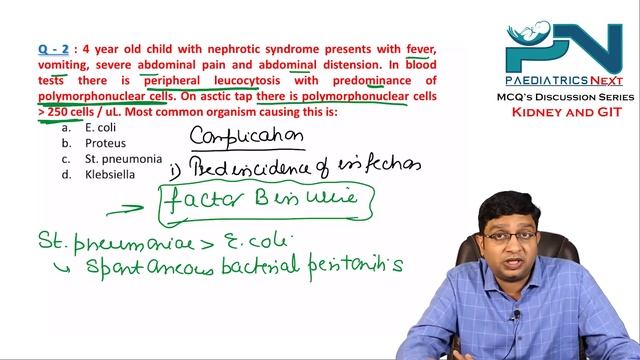 Q - 2 : 4 year old child with nephrotic syndrome presents with fever,
vomiting, severe abdominal pain and abdominal distension. In blood
tests there is peripheral leucocytosis with predominance of
polymorphonuclear cells. On asctic tap there is polymorphonuclear cells
> 250 cells / uL. Most common organism causing this is:
a. E. coli
b. Proteus
c. St. pneumonia
d. Klebsiella
Complication
i) ed incidence of infection
factor B in urine
St. pneumoniae > E. coli
↳ Spontaneous bacterial peritonitis
PN
PAEDIATRICS NEXT
MCQ's DISCUSSION SERIES
KIDNEY AND GIT